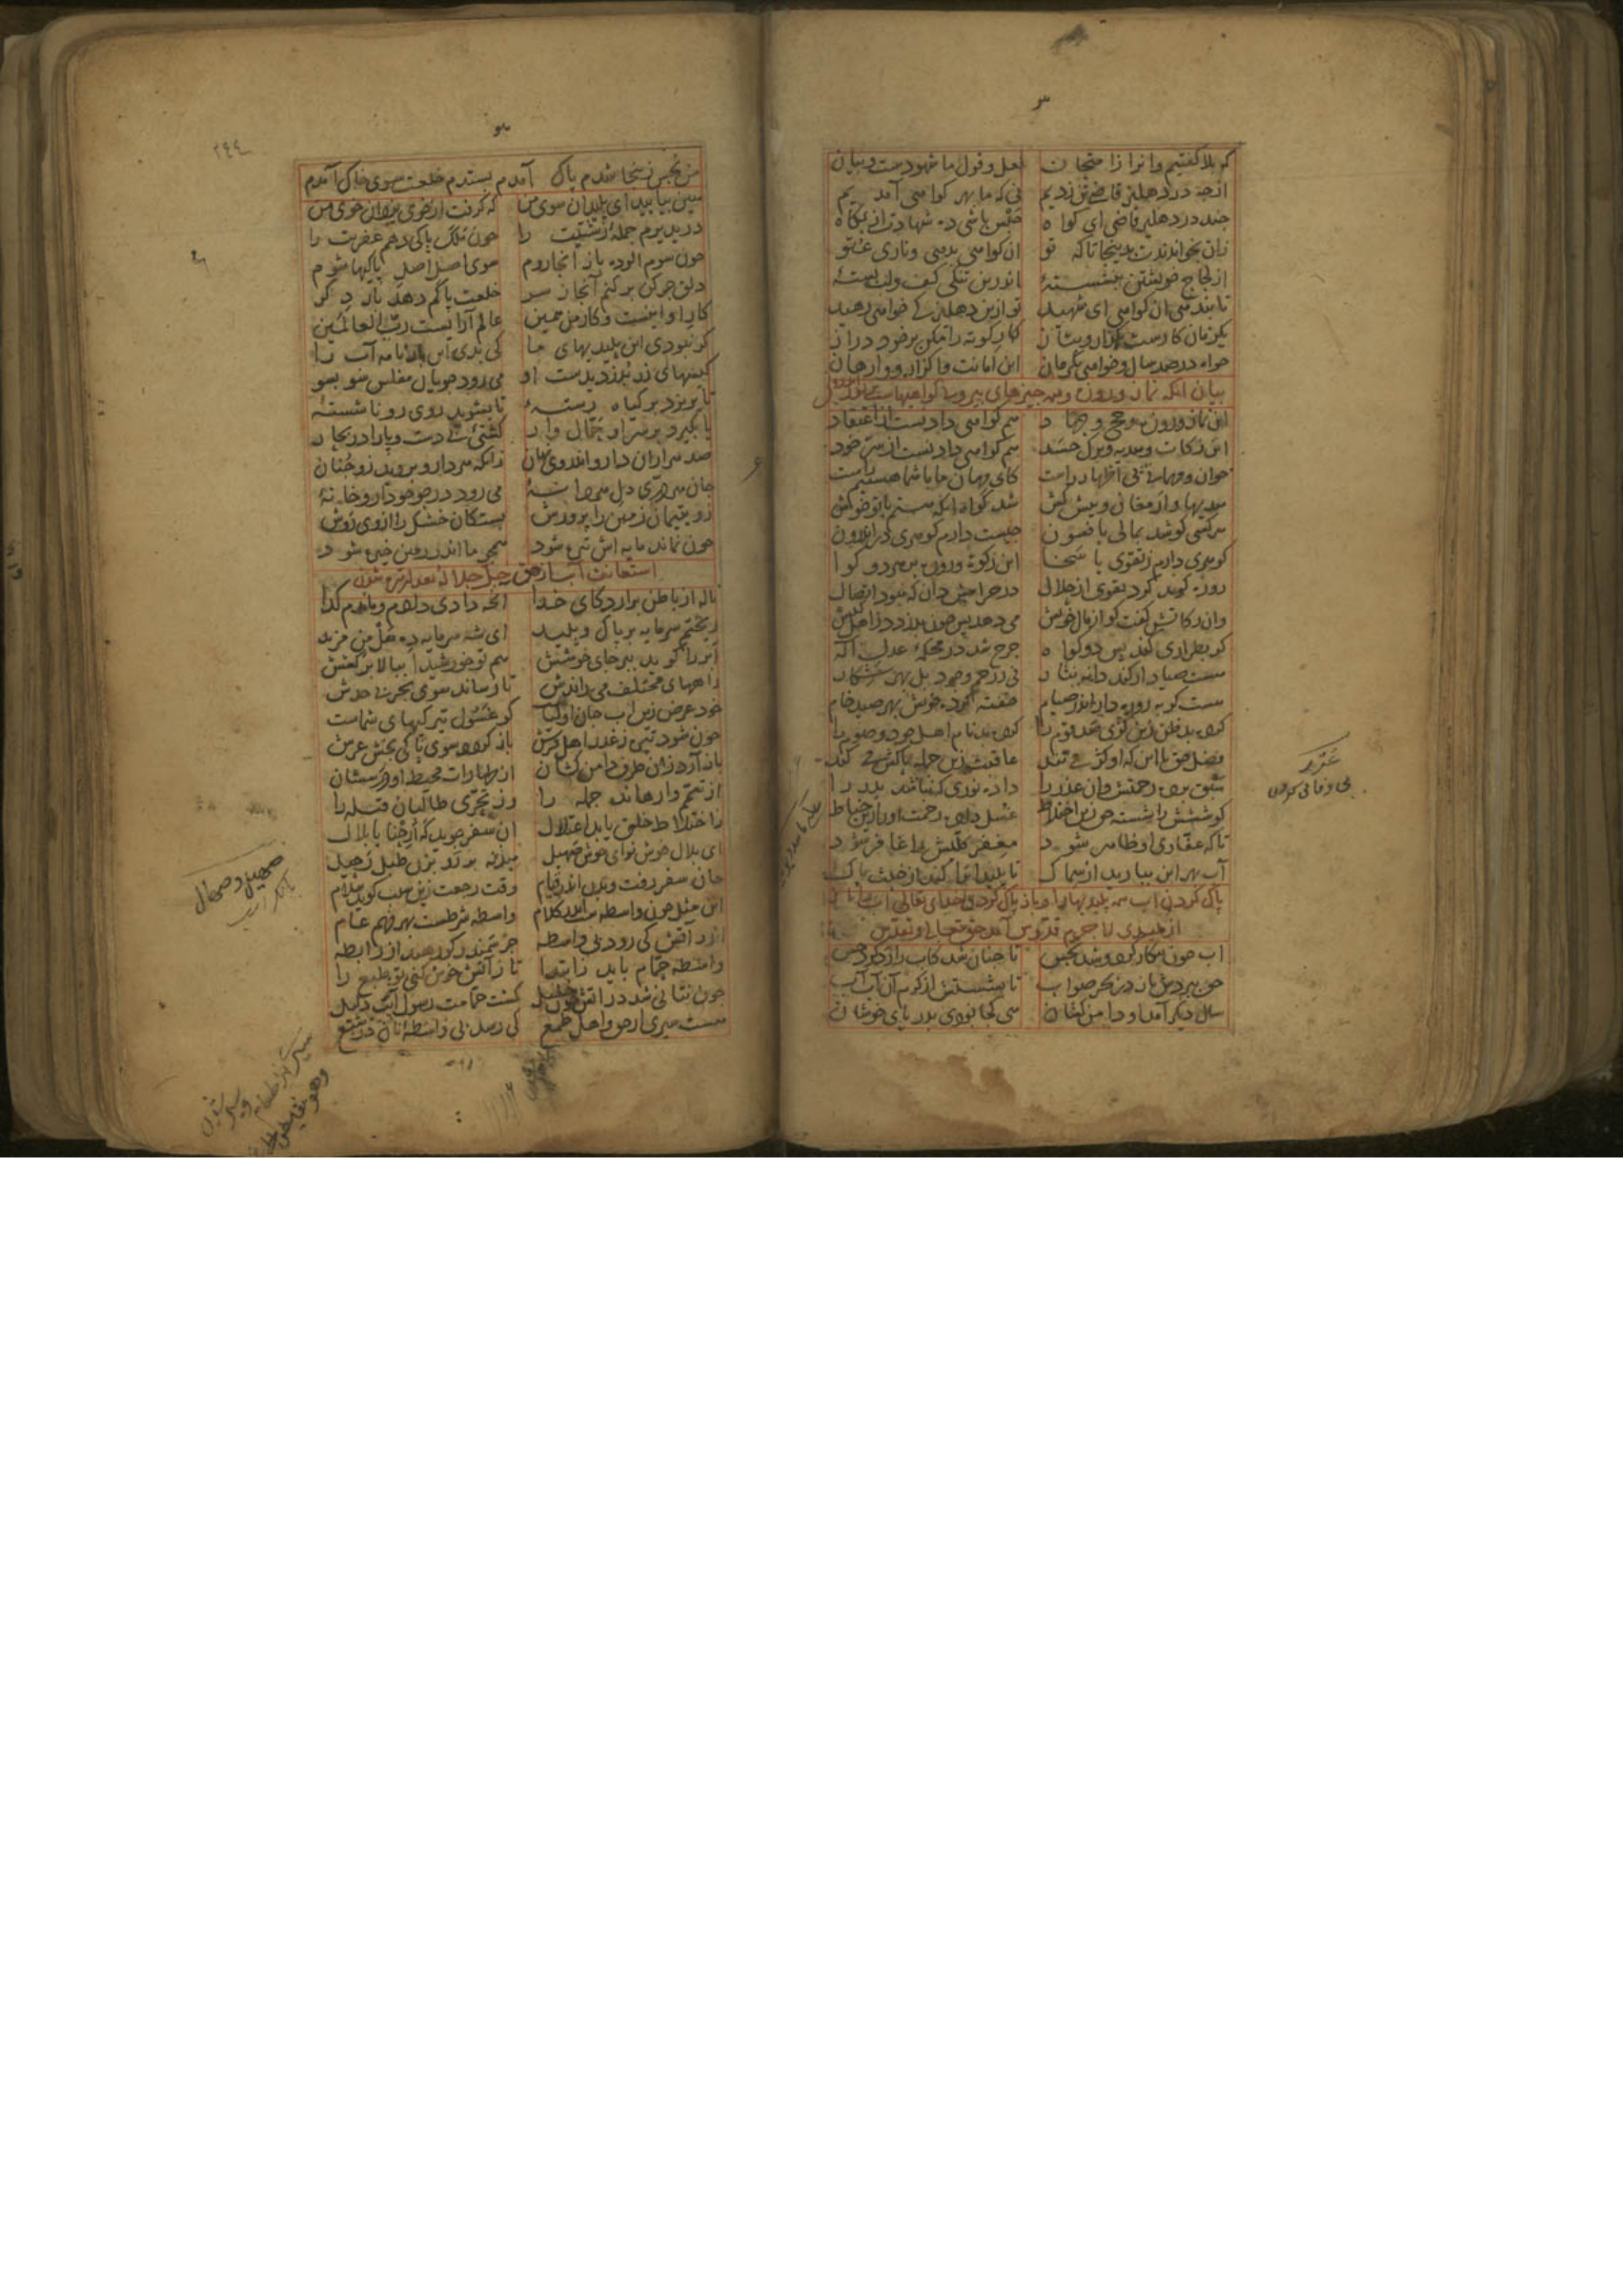 ۳
کو بلا کفتیم وانرا زا متحان فعل و قول ما شهودست و بیان
از جه در دهلیز قاضی تن زدیم نی که ما بهر کواهی آمدیم
جند در دهلیز قاضی ای کواه حبس باشی ده شهادت از بکاه
زان بخواندندت بدینجا تا که تو ان کواهی بدهی و ناری عتو
از لجاج خویشتن بنشستهٔ اندرین تنکی کف و لب بستهٔ
تا بندهی ان کواهی ای شهید تو ازین دهلیز کی خواهی رهید
یکزمان کارست بکزار و بتاز کار کوته را مکن برخود دراز
خواه در صد سال و خواهی یکزمان این امانت واکزار و وارهان
بیان انکه نماز و روزه و همه جیزهای بیرونی کواهیهاست بر نور اندرونی
این نماز و روزه و حج و جهاد هم کواهی دادنست از اعتقاد
این زکات و هدیه و ترک حسد هم کواهی دادنست از سر خود
خوان و مهمانی پی اظهار راست کای مهان ما با شما هستیم راست
هدیها و ارمغان و پیش کش شد کواه انکه هستم با تو خوش
هر کسی کوشد بمالی یا فسون جیست دارم کوهری در اندرون
کوهری دارم ز تقوی یا سخا این زکوة و روزه بر هر دو کوا
روزه کوید کرد تقوی از حلال در حرامش دان که نبود اتصال
وان زکاتش کفت کو از مال خویش می دهد پس جون بدزدد ز اهل کیش
کر بطراری کند پس دو کواه جرح شد در محکمهٔ عدل اله
هست صیاد ار کند دانه نثار نی ز رحم و جود بل بهر شکار
هست کربه روزه دار اندر صیام خفته کرده خویش بهر صید خام
کرده بد ظن زین کژی صد قوم را کرده بدنام اهل جود و صوم را
فضل حق با این که او کژ می تند عاقبت زین جمله پاکش می کند
سبق برده رحمتش وان غدر را داده نوری که نباشد بدر را
کوششش را شسته حق زین اختلاط غسل داده رحمت او را زین خباط
تا که غفاری او ظاهر شود مغفری کلیش را غافر شود
آب بهر این ببارید از سماک تا پلیدانرا کند از خبث پاک
پاک کردن اب همه پلیدیها را و باز پاک کردن خدای تعالی اب را
از پلیدی لا جرم قدوس آمد حق تعالی
اب جون پیکار کرد و شد نجس تا جنان شد کاب را رد کرد حس
حق ببردش باز در بحر صواب تا بشستش از کرم آن آب آب
سال دیکر آمد او دامن کشان هی کجا بودی بدریای خوشان
غدر
بی وفایی کردن
۲۴۴
من نجس زینجا شدم پاک آمدم بستدم خلعت سوی خاک آمدم
هین بیایید ای پلیدان سوی من که کرفت از خوی یزدان خوی من
در پذیرم جملهٔ زشتیت را جون ملک پاکی دهم عفریت را
جون شوم الوده باز انجا روم سوی اصل اصل پاکیها شوم
دلق جرکن برکنم آنجا ز سر خلعت پاکم دهد بار دکر
کار او اینست و کار من همین عالم آرایست رب العالمین
کر نبودی این پلیدیهای ما کی بدی این بارنامه آب را
کیسهای زر بدزدید ست او می رود جویان مفلس سو بسو
تا بریزد بر کیاه رستهٔ تا بشوید روی رو ناشستهٔ
یا بکیرد بر سر او حمال وار کشتی بی دست و پا را در بحار
صد هزاران دارو اندر وی نهان زانکه هر دارو بروید زو جنان
جان هر دری دل هر دانهٔ می رود در جو جو دارو خانهٔ
زو یتیمان زمین را پرورش بستکان خشک را از وی روش
جون نماند مایه اش تیره شود همجو ما اندر زمین خیره شود
استعانت آب از حق جل جلاله بعد از تیره شدن
ناله از باطن برارد کای خدا انجه دادی دادم و ماندم کدا
ریختم سرمایه بر پاک و پلید ای شه سرمایه ده هل من مزید
ابر را کوید ببر جای خوشش هم تو خورشیدا ببالا برکشش
راههای مختلف می راندش تا رساند سوی بحر بی حدش
خود غرض زین اب جان اولیا کو غسول تیرکیهای شماست
جون شود تیره ز غدر اهل فرش باز کردد سوی پاکی بخش عرش
باز آرد زان طرف دامن کشان از طهارات محیط او درسشان
از تیمم وارهاند جمله را وز تحری طالبان قبله را
ز اختلاط خلق یابد اعتلال ان سفر جوید که ارحنا یا بلال
ای بلال خوش نوای خوش صهیل میذنه بر رو بزن طبل رحیل
جان سفر رفت و بدن اندر قیام وقت رجعت زین سبب کوید سلام
این مثل جون واسطه ست اندر کلام واسطه شرطست بهر فهم عام
اندر آتش کی رود بی واسطه جز سمندر کو رهید از رابطه
واسطه حمام باید ز ابتدا تا ز آتش خوش کنی تو طبع را
جون نتانی شد در آتش جون خلیل کشت حمامت رسول آبت دلیل
هست سیری از حق و اهل طمع کی رسد بی واسطهٔ نان در شبع
صهیل و صهال
بانک اسب